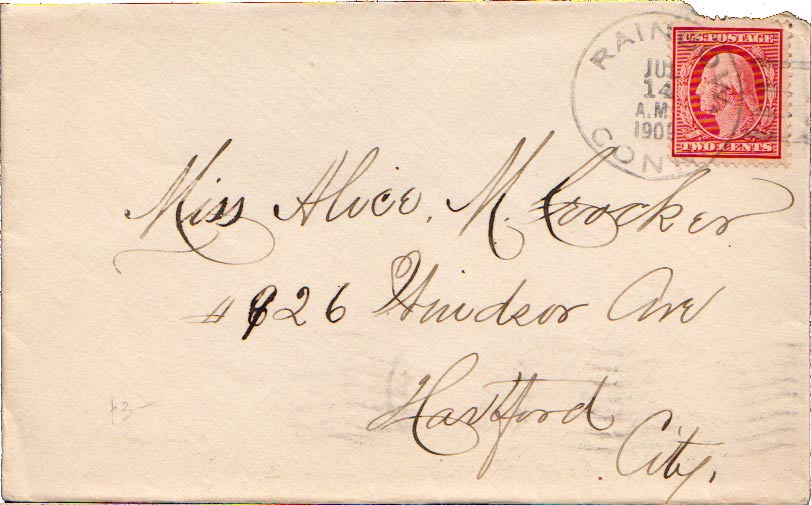 RAINBOW
CONN
JU
14
A.M.
1909
U.S. POSTAGE
TWO CENTS
Miss Alice. M. Crocker
# 926 Windsor Ave
Hartford
City.